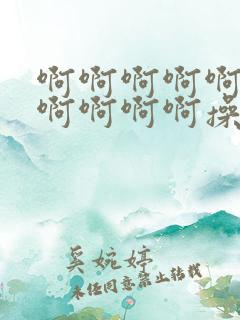 啊啊啊啊啊
啊啊啊啊操
奚婉婷
未经同意禁止转载